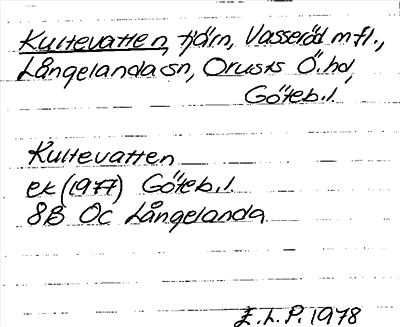 Kultevatten, tjärn, Vasseröd m fl.,
Långelanda sn, Orusts Ö. hd,
Göteb. l.
Kultevatten
ek (1977) Göteb. l.
8B 0c Långelanda
E.L.P. 1978